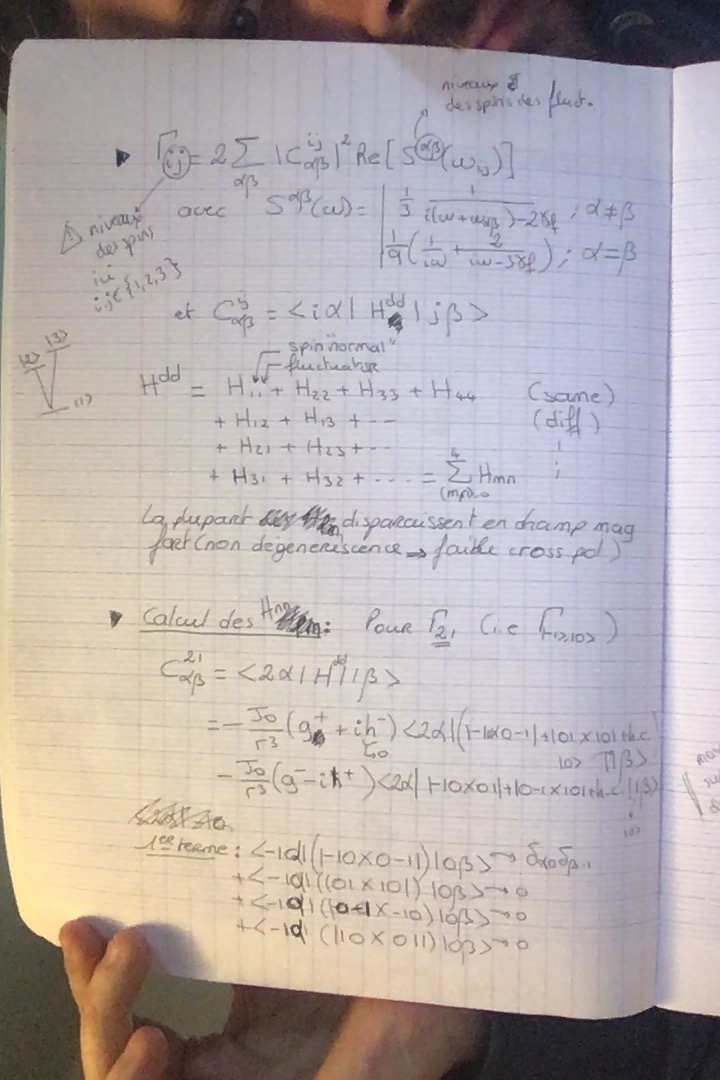 niveaux
des spins des fluct.
▶ Γij = 2 Σαβ |C^ij_αβ|² Re[S^αβ(ωij)]
avec S^αβ(ω) = | 1/3 1/(i(ω+ωαβ)-2γf) ; α≠β
1/9 (1/iω + 2/(iω-3γf)) ; α=β
⚠ niveaux
des spins
i,j∈{1,2,3}
et C^ij_αβ = <iα| H^dd |jβ>
|2> |3>
|1>
spin "normal"
fluctuator
H^dd = H11 + H22 + H33 + H44 (same)
+ H12 + H13 + -- (diff)
+ H21 + H23 + --
+ H31 + H32 + ... = Σ Hmn
La plupart disparaissent en champ mag
fort (non dégénérescence → faible cross pol)
▶ Calcul des Hmn : Pour Γ21 (i.e Γ|-1>,|0>)
C^21_αβ = <2α| H^dd |1β>
= - J0/r³ (g^+ + ih^-) <2α|(|-10X0-1|+|01X10|+h.c
|0>
- J0/r³ (g^- - ih^+) <2α| |-10X01|+|0-1X10|+h.c. |1β>
|0>
1er terme : <-1α|(|-10X0-1|)|0β> → δα0δβ-1
+<-1α|(|01X10|)|0β> → 0
+<-1α|(|0-1X-10|)|0β> → 0
+<-1α|(|10X01|)|0β> → 0